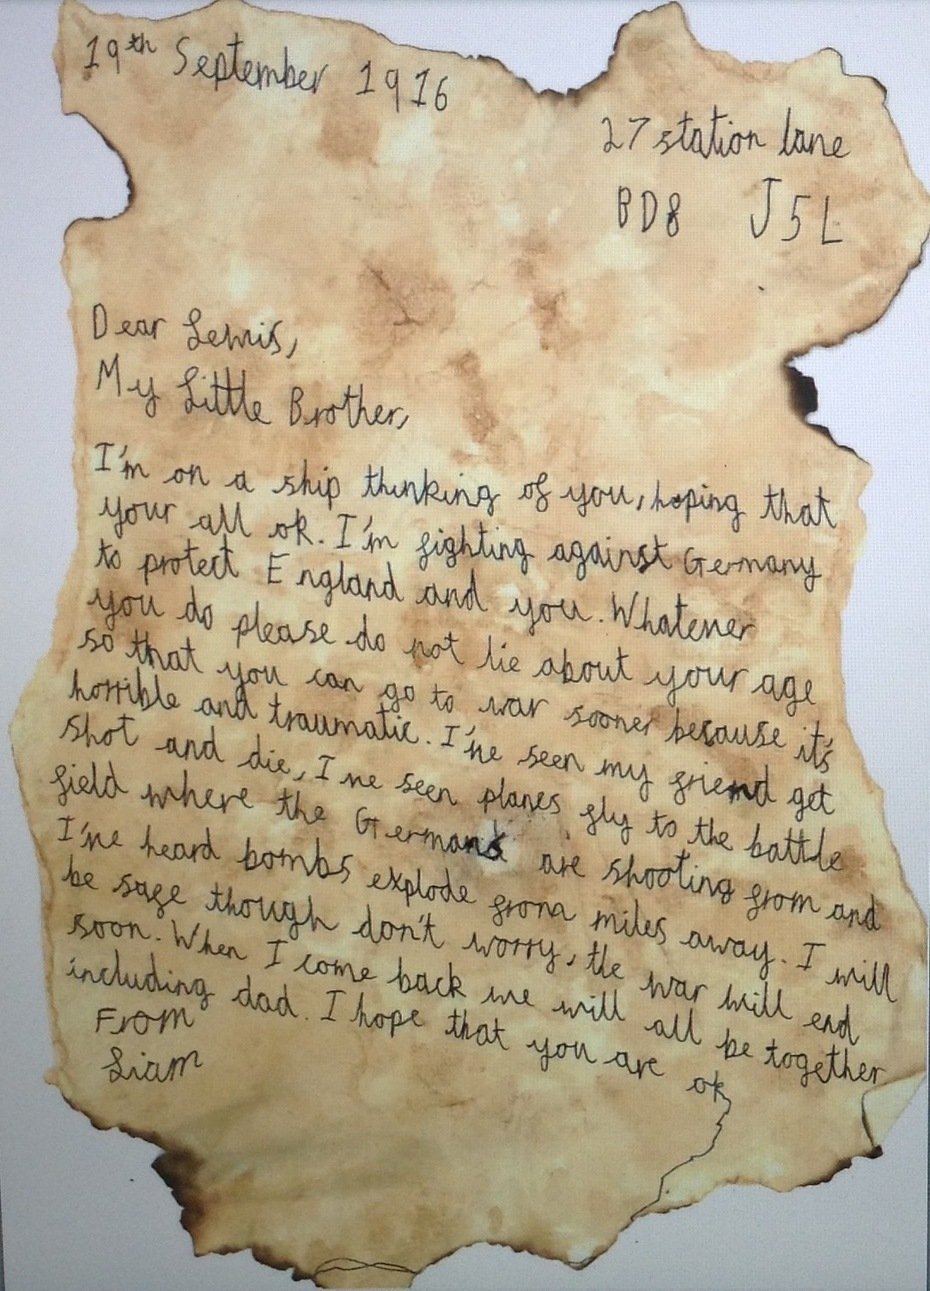 19th September 1916
27 station lane
BD8 J5L
Dear Lewis,
My Little Brother,
I'm on a ship thinking of you, hoping that
your all ok. I'm fighting against Germany
to protect England and you. Whatever
you do please do not lie about your age
so that you can go to war sooner because it's
horrible and traumatic. I've seen my friend get
shot and die, I've seen planes fly to the battle
field where the Germans are shooting from and
I've heard bombs explode from miles away. I will
be safe though don't worry, the war will end
soon. When I come back we will all be together
including dad. I hope that you are ok
From
Liam